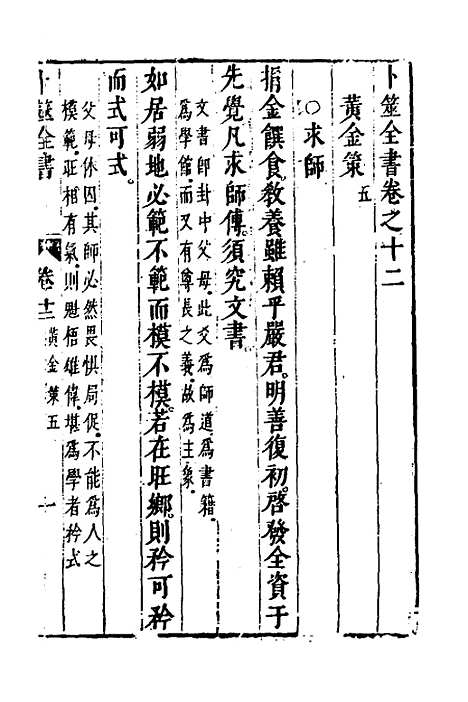 卜筮全書卷之十二
黃金策五
○求師
捐金饌食。敎養雖賴乎嚴君。明善復初。啓發全資于
先覺。凡求師傅。須究文書。
文書卽卦中父母。此爻爲師道。爲書籍。
爲學館。而又有尊長之義。故爲主象。
如居弱地。必範不範而模不模。若在旺鄉。則矜可矜
而式可式。
父母休囚。其師必然畏惧局促。不能爲人之
模範。旺相有氣。則魁梧雄偉。堪爲學者矜式
卜筮全書
卷十二
黃金策五
一